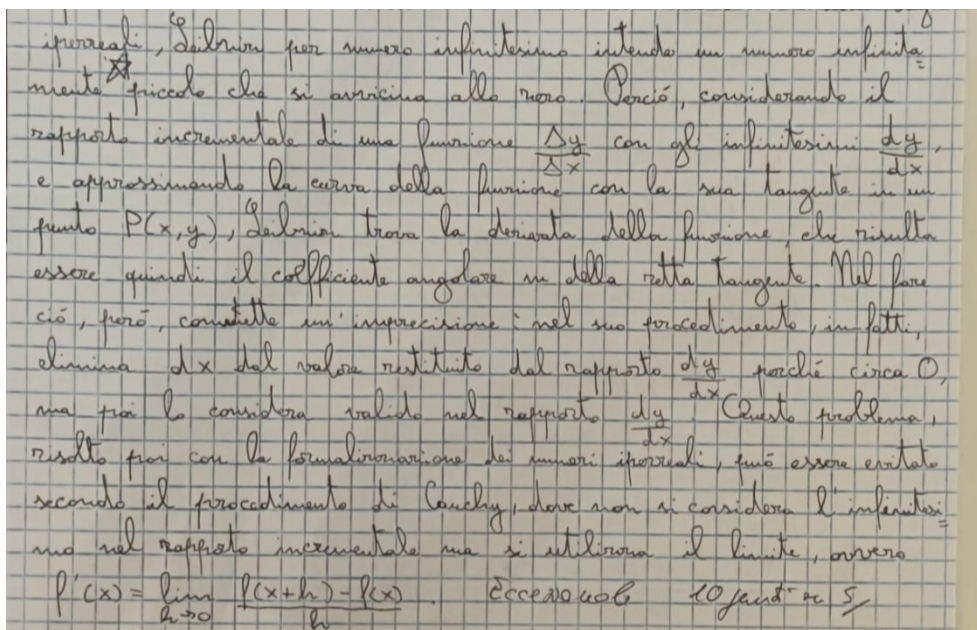 iperreali, Leibniz per numero infinitesimo intende un numero infinita=
mente piccolo che si avvicina allo zero. Perciò, considerando il
rapporto incrementale di una funzione Δy/Δx con gli infinitesimi dy/dx,
e approssimando la curva della funzione con la sua tangente in un
punto P(x,y), Leibniz trova la derivata della funzione, che risulta
essere quindi il coefficiente angolare m della retta tangente. Nel fare
ciò, però, commette un'imprecisione: nel suo procedimento, infatti,
elimina dx dal valore restituito dal rapporto dy/dx perché circa 0,
ma poi lo considera valido nel rapporto dy/dx. Questo problema,
risolto poi con la formalizzazione dei numeri iperreali, può essere evitato
secondo il procedimento di Cauchy, dove non si considera l'infinitesi=
mo nel rapporto incrementale ma si utilizza il limite, ovvero
f'(x) = lim h→0 f(x+h)-f(x)/h. Eccezionale 10